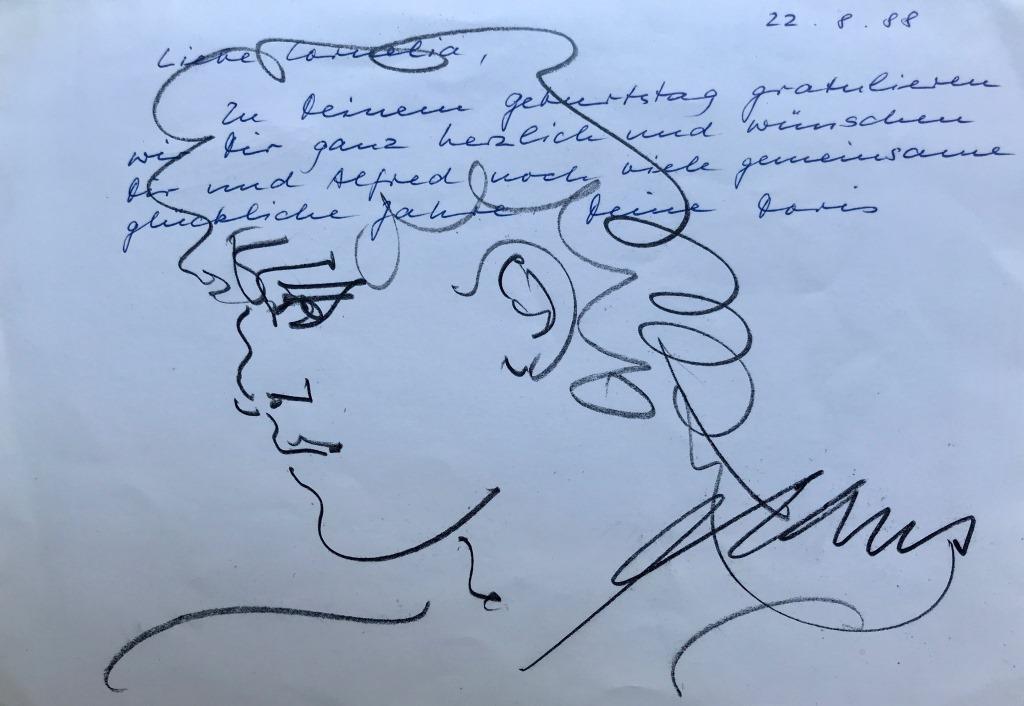 22.8.88
Liebe Cornelia,
Zu Deinem Geburtstag gratulieren
wir Dir ganz herzlich und wünschen
Dir und Alfred noch viele gemeinsame
glückliche Jahre Deine Doris